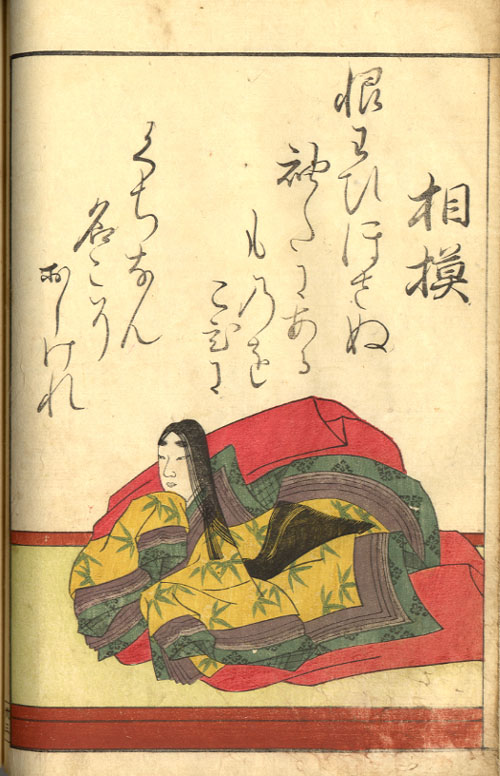 相模
恨みわひほさぬ
袖たにある
ものを
こひに
くちなん
名こそ
おしけれ